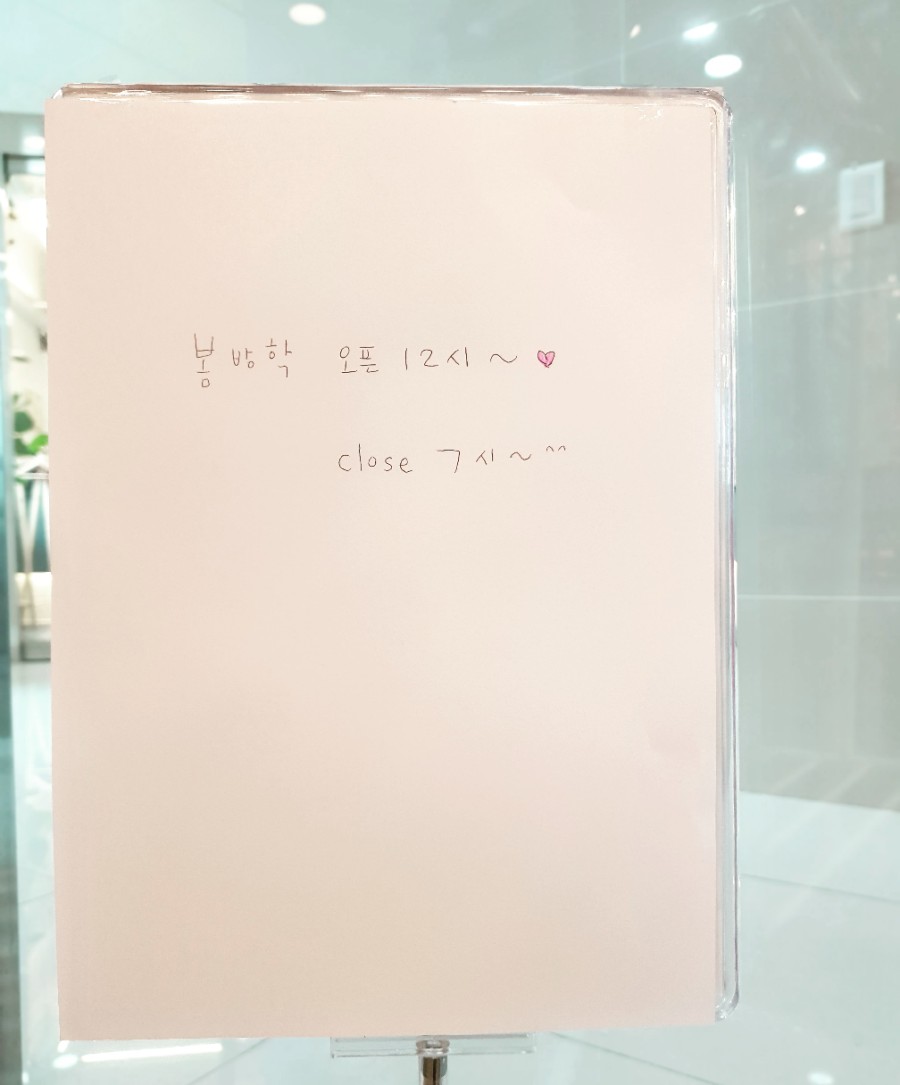 봄방학 오픈 12시~♥
close 7시~^^